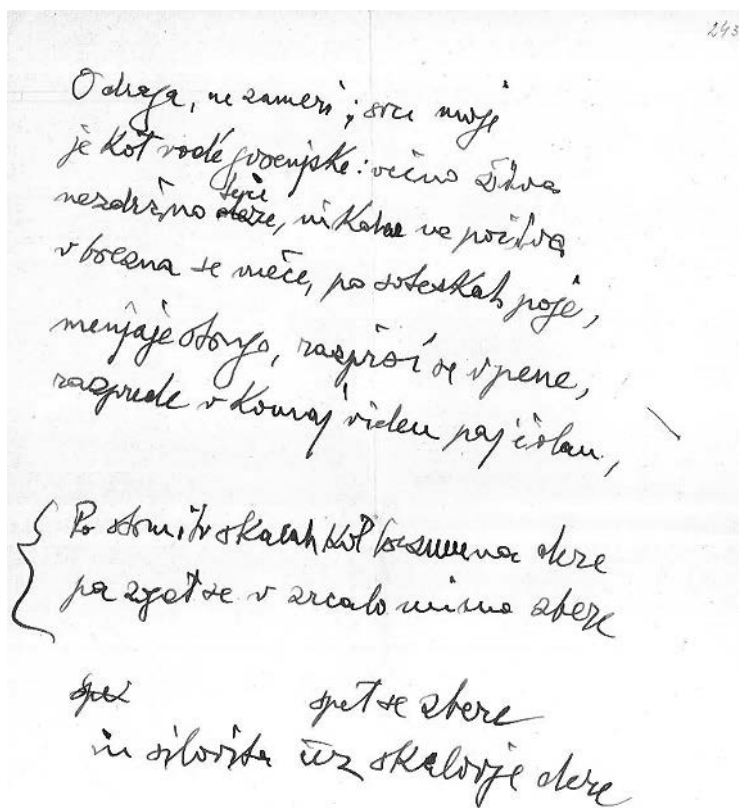 243
O draga, ne zameri; srce moje
je kot vodé gorenjske: večno živa
teče
nezdržno dere, nikdar ne počiva
v brezna se meče, po soteskah poje,
menjaje strugo, razprši se v pene,
razprede v komaj viden pajčolan,
Po strmih skalah kot brezumna dere
pa zgot se v zrcalo mirno zbere
spet
spet se zbere
in silovita čez skalovje dere